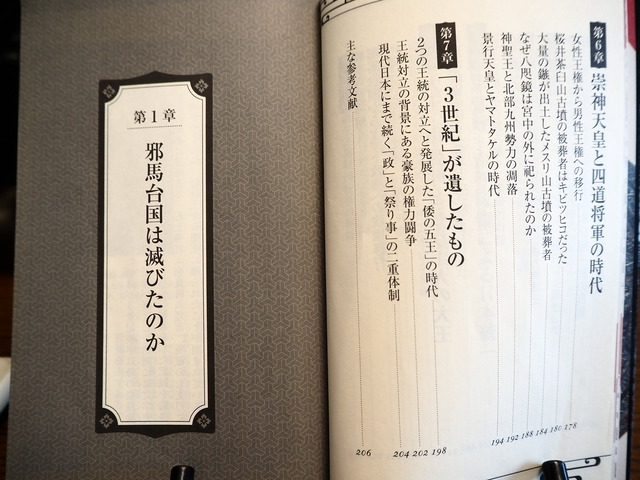 第6章 崇神天皇と四道将軍の時代
女性王権から男性王権への移行 178
桜井茶臼山古墳の被葬者はキビツヒコだった 180
大量の鏃が出土したメスリ山古墳の被葬者 184
なぜ八咫鏡は宮中の外に祀られたのか 188
神聖王と北部九州勢力の凋落 192
景行天皇とヤマトタケルの時代 194
第7章 「3世紀」が遺したもの
2つの王統の対立へと発展した「倭の五王」の時代 198
王統対立の背景にある豪族の権力闘争 202
現代日本にまで続く「政」と「祭り事」の二重体制 204
主な参考文献 206
第1章
邪馬台国は滅びたのか